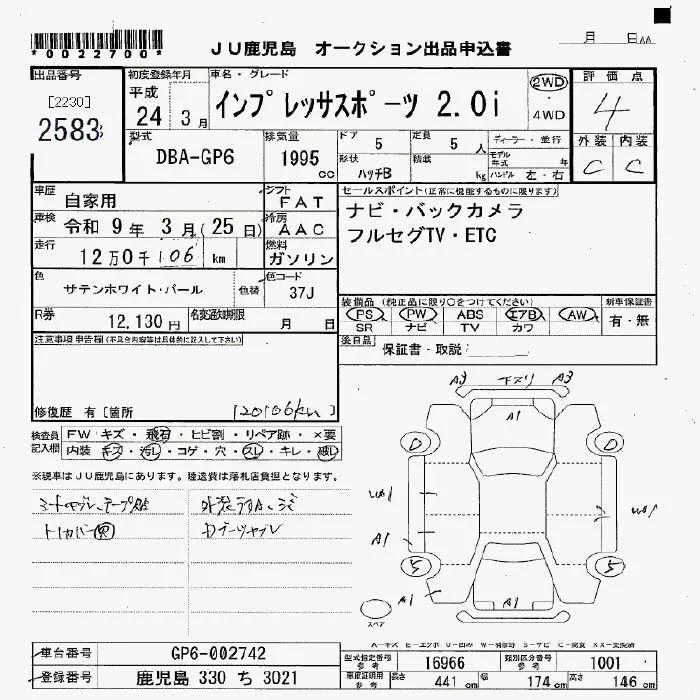 *0022700*
JU鹿児島 オークション出品申込書
月 日AA
出品番号
[2230]
2583
初度登録年月
平成
24 3月
車名・グレード
インプレッサスポーツ 2.0i
2WD
・
4WD
評価点
4
外装 内装
C C
型式
DBA-GP6
排気量
1995
cc
ドア
5
定員
5 人
形状
ハッチB
積載
kg
ディーラー・並行
モデル年式 年
ハンドル 左・右
車歴
自家用
シフト
FAT
車検
令和 9年 3月(25日)
冷房
AAC
走行
12万0千106 km
燃料
ガソリン
色
サテンホワイト・パール
色替
色コード
37J
R券
12,130円
名変通知期限
月 日
セールスポイント(正常に機能するものに限ります)
ナビ・バックカメラ
フルセグTV・ETC
装備品(純正品に限り○をつけてください)
PS PW ABS エアB AW
SR ナビ TV カワ
新車保証書
有・無
後日品
保証書・取説:
注意事項 申告欄(不具合内容等は具体的に記入して下さい)
修復歴 有[箇所
120106km]
検査員
記入欄
FW キズ・飛石・ヒビ割・リペア跡・×要
内装 キズ・汚レ・コゲ・穴・スレ・キレ・破レ
※現車はJU鹿児島にあります。陸送費は落札店負担となります。
A3 下スリ A3
A1
A1
A1
A1
S S
スペア
A-キズ E-エクボ U-凹み W-補修跡 S-サビ C-腐食 XX-交換済
車台番号
GP6-002742
登録番号
鹿児島 330 ち 3021
型式指定番号
参考
16966
類別区分番号
参考
1001
車庫証明用
参考
長さ
441 cm
幅
174 cm
高さ
146 cm